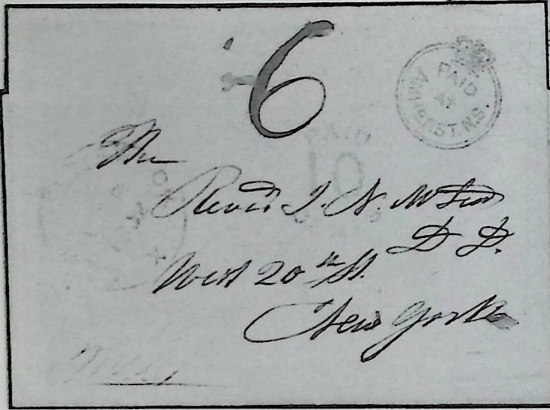 6
PAID
AT
AMHERST.N.S.
PAID
10
The
Revd J. N. McLeod
D. D.
West 20th St.
New York